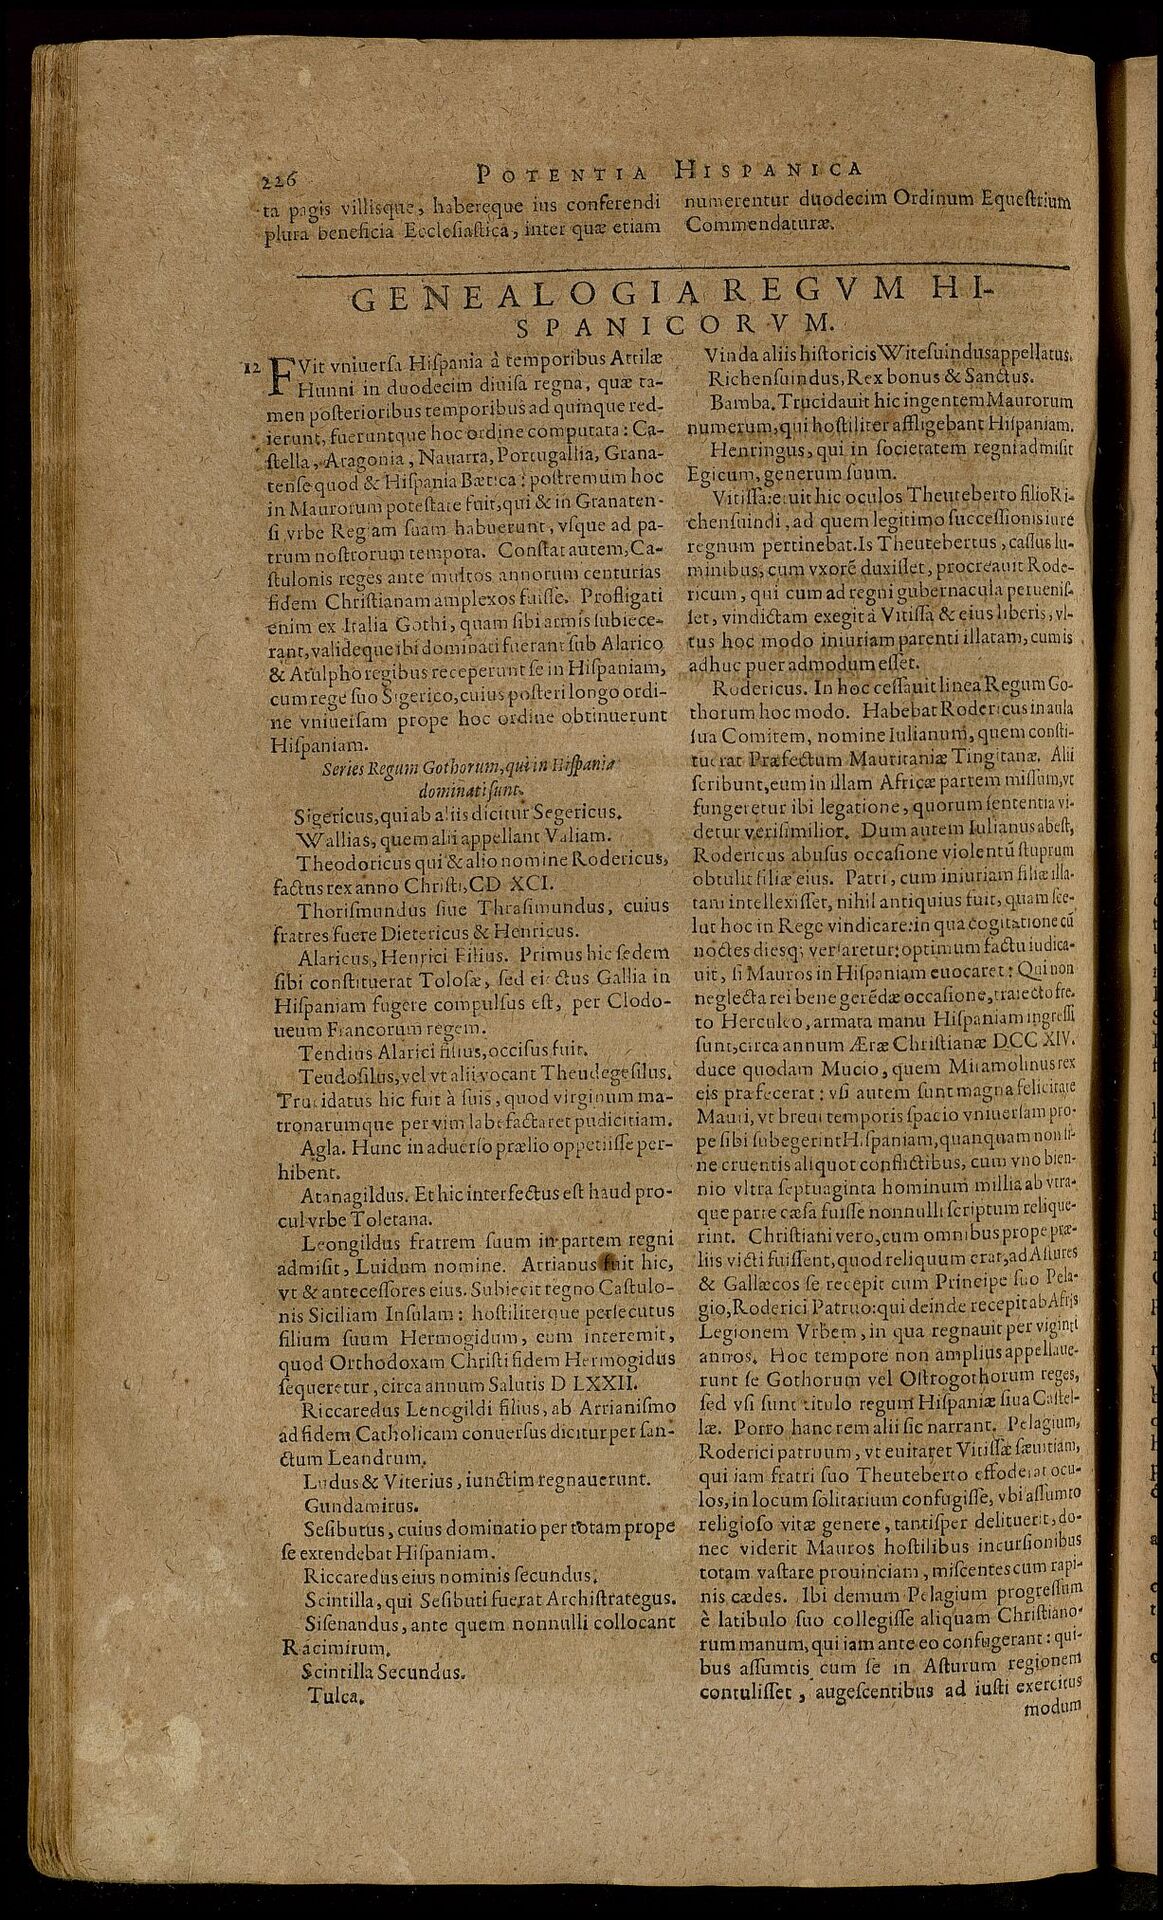 226
POTENTIA HISPANICA
ta pagis villisque, habereque ius conferendi
plura beneficia Ecclesiastica, inter quæ etiam
numerentur duodecim Ordinum Equestrium
Commendaturæ.
GENEALOGIA REGVM HI-
SPANICORVM.
12 FVit vniuersa Hispania à temporibus Attilæ
Hunni in duodecim diuisa regna, quæ ta-
men posterioribus temporibus ad quinque red-
ierunt, fueruntque hoc ordine computata: Ca-
stella, Aragonia, Nauarra, Portugallia, Grana-
tense quod & Hispania Bætica: postremum hoc
in Maurorum potestate fuit, qui & in Granaten-
si vrbe Regiam suam habuerunt, vsque ad pa-
trum nostrorum tempora. Constat autem, Ca-
stulonis reges ante multos annorum centurias
fidem Christianam amplexos fuisse. Profligati
enim ex Italia Gothi, quam sibi armis subiece-
rant, valideque ibi dominati fuerant sub Alarico
& Atulpho regibus receperunt se in Hispaniam,
cum rege suo Sigerico, cuius posteri longo ordi-
ne vniuersam prope hoc ordine obtinuerunt
Hispaniam.
Series Regum Gothorum, qui in Hispania
dominati sunt.
Sigericus, qui ab aliis dicitur Segericus.
Wallias, quem alii appellant Valiam.
Theodoricus qui & alio nomine Rodericus,
factus rex anno Christi, CD XCI.
Thorismundus siue Thrasimundus, cuius
fratres fuere Dietericus & Henricus.
Alaricus, Henrici Filius. Primus hic sedem
sibi constituerat Tolosæ, sed eiectus Gallia in
Hispaniam fugere compulsus est, per Clodo-
ueum Francorum regem.
Tendius Alarici filius, occisus fuit.
Teudosilus, vel vt alii vocant Theudegesilus.
Trucidatus hic fuit à suis, quod virginum ma-
tronarumque per vim labefactaret pudicitiam.
Agla. Hunc in aduerso prælio oppetiisse per-
hibent.
Atanagildus. Et hic interfectus est haud pro-
cul vrbe Toletana.
Leongildus fratrem suum in partem regni
admisit, Luidum nomine. Arrianus fuit hic,
vt & antecessores eius. Subiecit regno Castulo-
nis Siciliam Insulam: hostiliterque persecutus
filium suum Hermogidum, eum interemit,
quod Orthodoxam Christi fidem Hermogidus
sequeretur, circa annum Salutis D LXXII.
Riccaredus Lenogildi filius, ab Arrianismo
ad fidem Catholicam conuersus dicitur per san-
ctum Leandrum.
Ludus & Viterius, iunctim regnauerunt.
Gundamirus.
Sesibutus, cuius dominatio per totam prope
se extendebat Hispaniam.
Riccaredus eius nominis secundus.
Scintilla, qui Sesibuti fuerat Archistrategus.
Sisenandus, ante quem nonnulli collocant
Racimirum.
Scintilla Secundus.
Tulca.
Vinda aliis historicis Witesuindus appellatus.
Richensuindus, Rex bonus & Sanctus.
Bamba. Trucidauit hic ingentem Maurorum
numerum, qui hostiliter affligebant Hispaniam.
Henringus, qui in societatem regni admisit
Egicum, generum suum.
Vitissa: eruit hic oculos Theuteberto filio Ri-
chensuindi, ad quem legitimo successionis iure
regnum pertinebat. Is Theutebertus, cassus lu-
minibus, cum vxorẽ duxisset, procreauit Rode-
ricum, qui cum ad regni gubernacula peruenis-
set, vindictam exegit à Vitissa & eius liberis, vl-
tus hoc modo iniuriam parenti illatam, cum is
adhuc puer admodum esset.
Rodericus. In hoc cessauit linea Regum Go-
thorum hoc modo. Habebat Rodericus in aula
sua Comitem, nomine Iulianum, quem consti-
tuerat Præfectum Mauritaniæ Tingitanæ. Alii
scribunt, eum in illam Africæ partem missum, vt
fungeretur ibi legatione, quorum sententia vi-
detur verisimilior. Dum autem Iulianus abest,
Rodericus abusus occasione violentũ stuprum
obtulit filiæ eius. Patri, cum iniuriam filiæ illa-
tam intellexisset, nihil antiquius fuit, quam sce-
lut hoc in Rege vindicare: in qua cogitatione cũ
noctes diesq; versaretur: optimum factu iudica-
uit, si Mauros in Hispaniam euocaret: Qui non
neglecta rei bene gerẽdæ occasione, traiecto fre-
to Herculeo, armata manu Hispaniam ingressi
sunt, circa annum Æræ Christianæ DCC XIV.
duce quodam Mucio, quem Miramolinus rex
eis præfecerat: vsi autem sunt magna felicitate
Mauri, vt breui temporis spacio vniuersam pro-
pe sibi subegerint Hispaniam, quanquam non si-
ne cruentis aliquot conflictibus, cum vno bien-
nio vltra septuaginta hominum millia ab vtra-
que parte cæsa fuisse nonnulli scriptum relique-
rint. Christiani vero, cum omnibus prope præ-
liis victi fuissent, quod reliquum erat, ad Astures
& Gallæcos se recepit cum Principe suo Pela-
gio, Roderici Patruo: qui deinde recepit ab Afris
Legionem Vrbem, in qua regnauit per viginti
annos. Hoc tempore non amplius appellaue-
runt se Gothorum vel Ostrogothorum reges,
sed vsi sunt titulo regum Hispaniæ siua Castel-
læ. Porro hanc rem alii sic narrant. Pelagium,
Roderici patruum, vt euitaret Vitissæ sæuitiam,
qui iam fratri suo Theuteberto effoderat ocu-
los, in locum solitarium confugisse, vbi assumto
religioso vitæ genere, tantisper delituerit, do-
nec viderit Mauros hostilibus incursionibus
totam vastare prouinciam, miscentes cum rapi-
nis cædes. Ibi demum Pelagium progressum
è latibulo suo collegisse aliquam Christiano-
rum manum, qui iam ante eo confugerant: qui-
bus assumtis cum se in Asturum regionem
contulisset, augescentibus ad iusti exercitus
modum